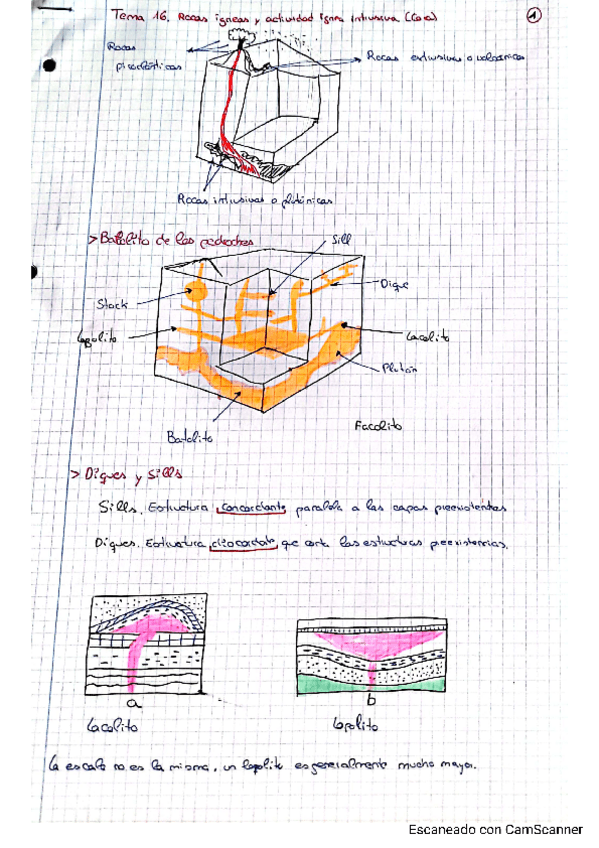 Tema 16. Rocas ígneas y actividad ígnea intrusiva (Cara) 1
Rocas
piroclásticas
Rocas extrusivas o volcánicas
Rocas intrusivas o plutónicas
> Batolito de los pedroches
Sill
Stock
Dique
Lopolito
Lacolito
Plutón
Batolito
Facolito
> Diques y Sills
Sills. Estructura concordante paralela a las capas preexistentes
Diques. Estructura que corta las estructuras preexistencias.
a
b
Lacolito
Lopolito
La escala no es la misma, un lopolito es generalmente mucho mayor.
Escaneado con CamScanner